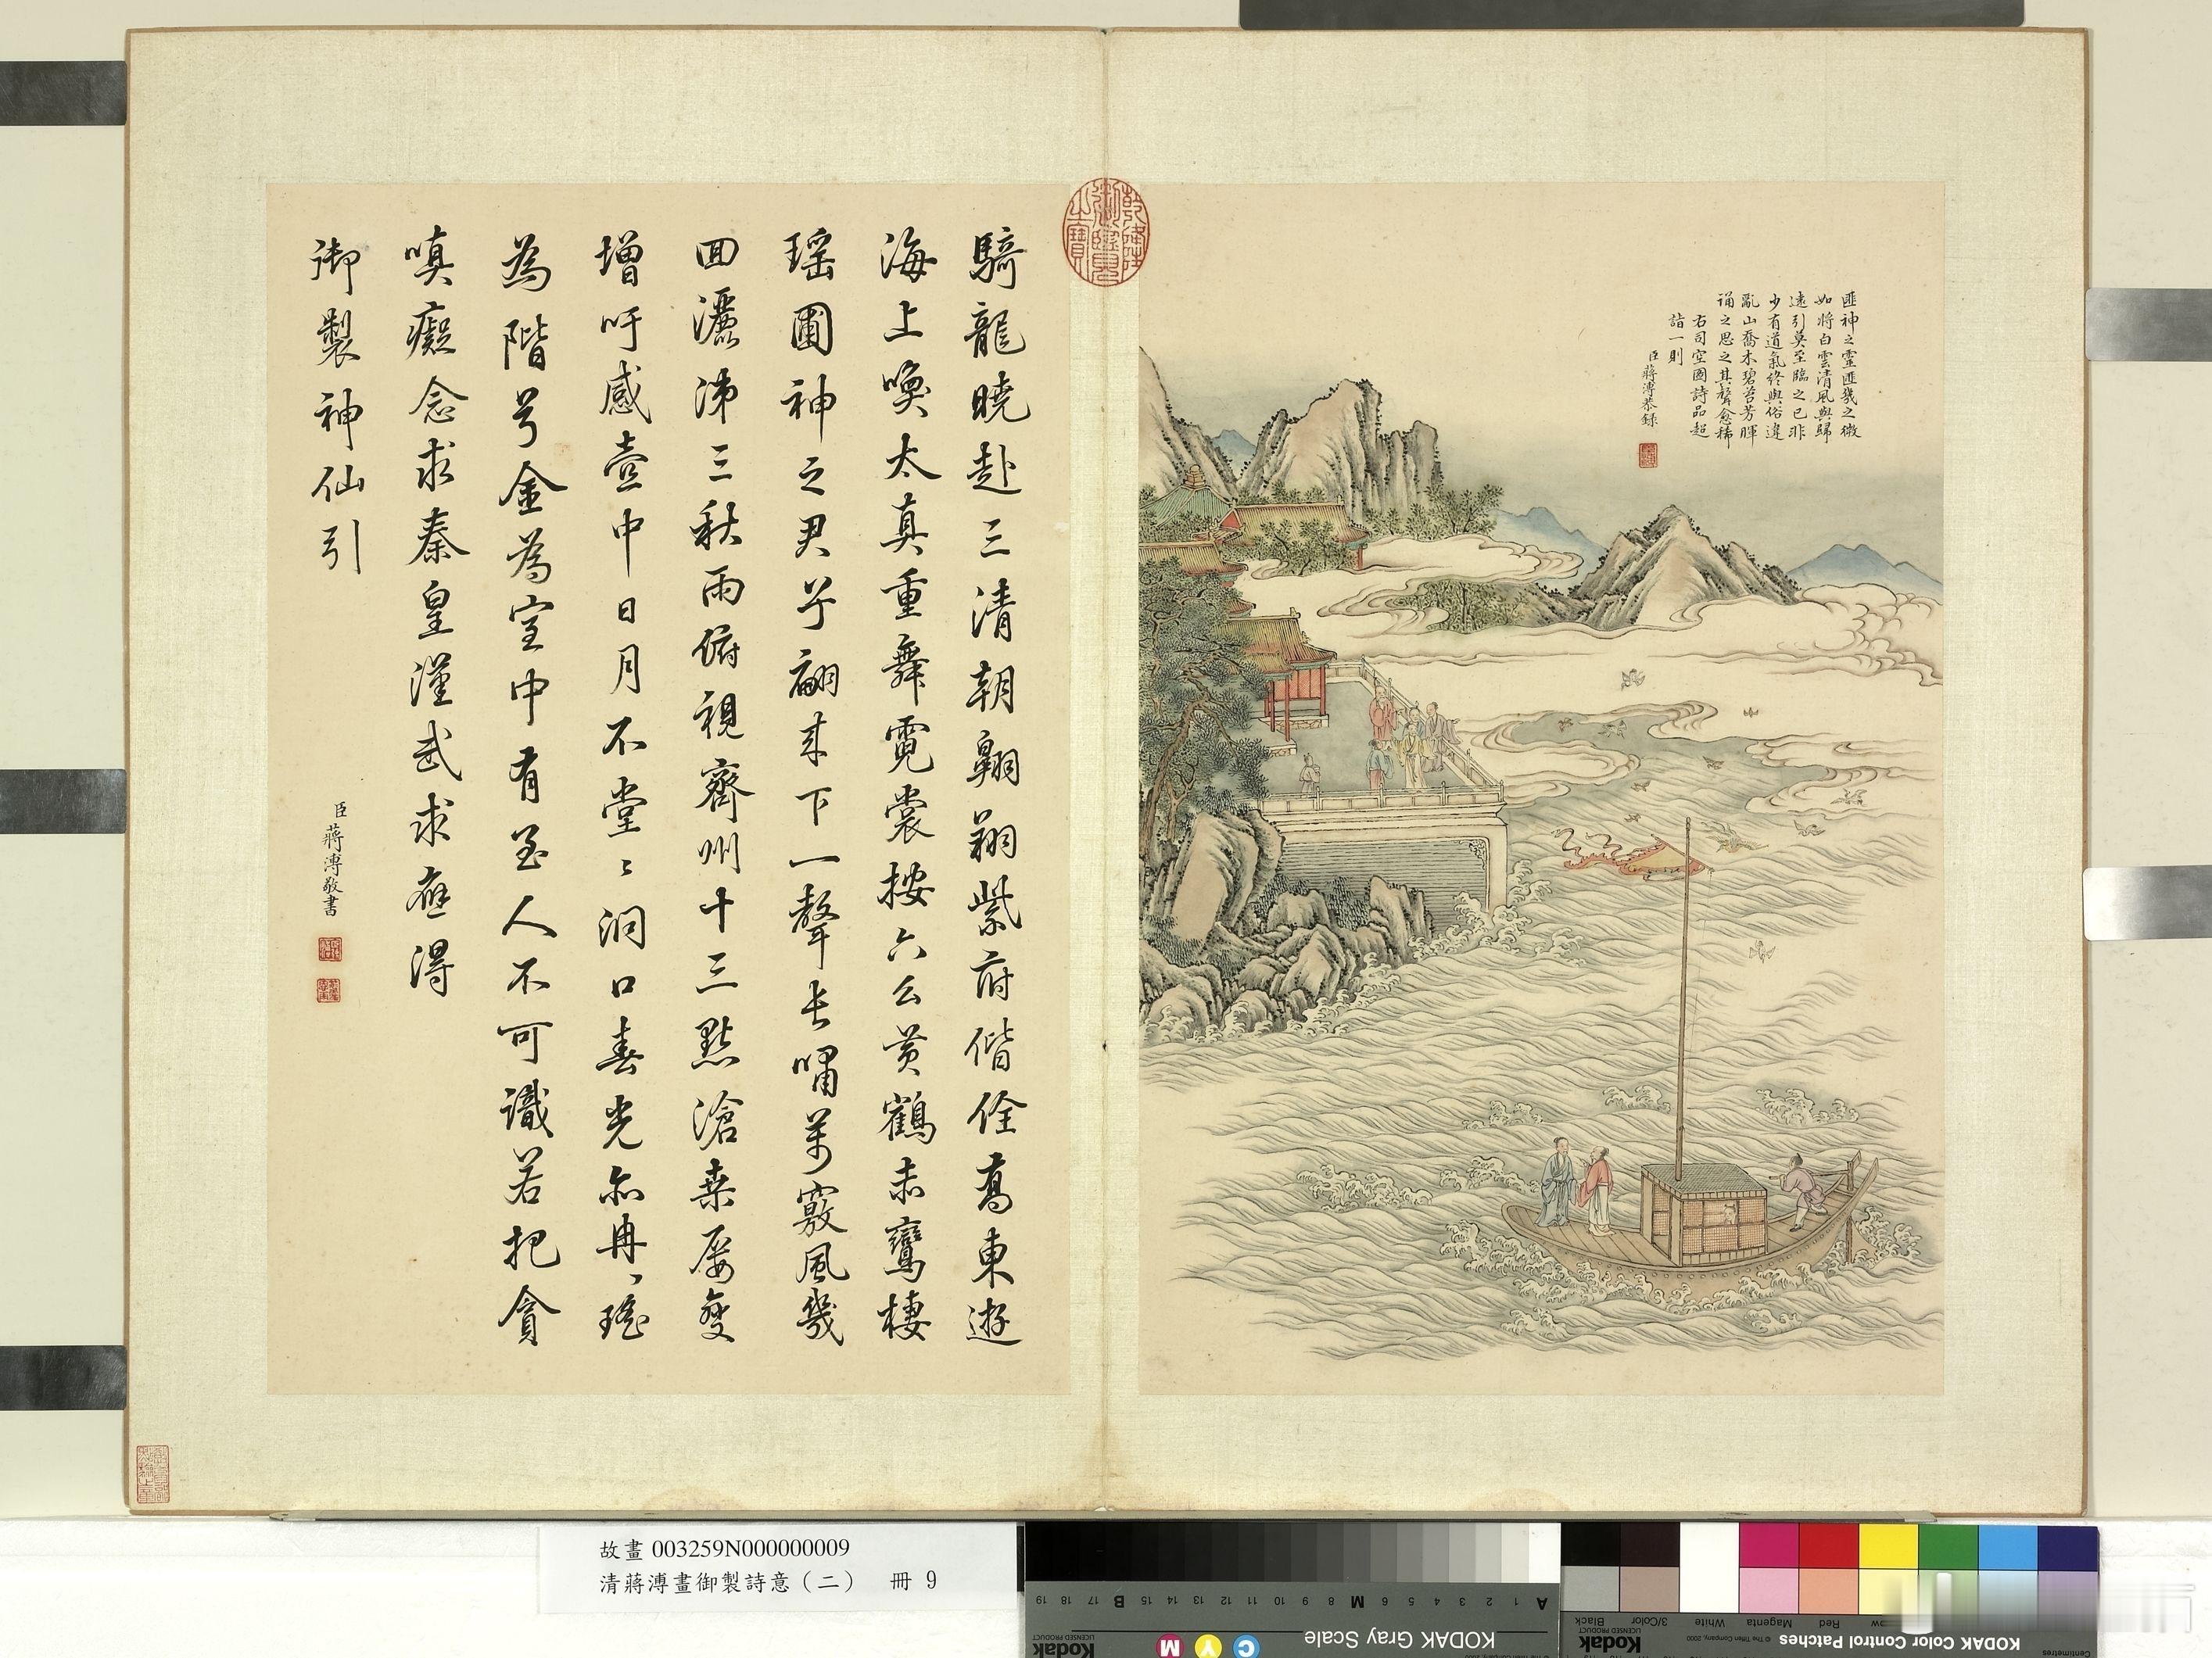 匪神之靈匪幾之微
如將白雲清風與歸
遠引莫至臨之已非
少有道氣終與俗違
亂山喬木碧苔芳暉
誦之思之其聲愈稀
右司空圖詩品超
詣一則
臣蔣溥恭録
乾隆御覽之寶
騎龍曉赴三清朝翺翔紫府偕佺喬東遊
海上喚太真重舞霓裳按六么黄鶴赤鸞棲
瑶圃神之君兮翩來下一聲長嘯萬竅風幾
回灑沸三秋雨俯視齊州十三點滄桑屢變
增吁感壺中日月不堂〻洞口春光亦冉〻瑤
為階兮金為室中有至人不可識若把貪
嗔癡念求秦皇漢武求應得
御製神仙引
臣蔣溥敬書
故畫 003259N000000009
清蔣溥畫御製詩意（二） 冊 9
KODAK Gray Scale
Kodak
LICENSED PRODUCT
C Y M
A 1 2 3 4 5 6 M 8 9 10 11 12 13 14 15 B 17 18 19
KODAK Color Control Patches
Kodak
LICENSED PRODUCT
© The Tiffen Company, 2000
Centimetres
Red Magenta White 3/Color Black